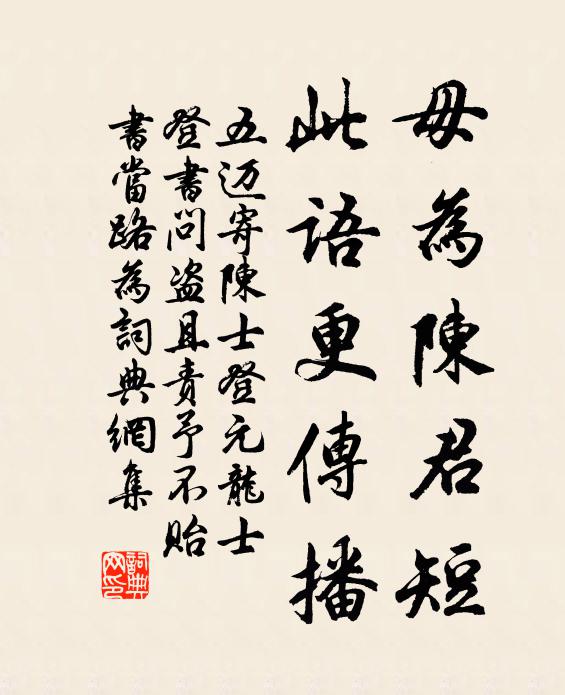 毋為陳君短
此語更傳播
五迈寄陳士登元龍士
登書問盗且責予不貽
書當路為詞典網集
詞典网印